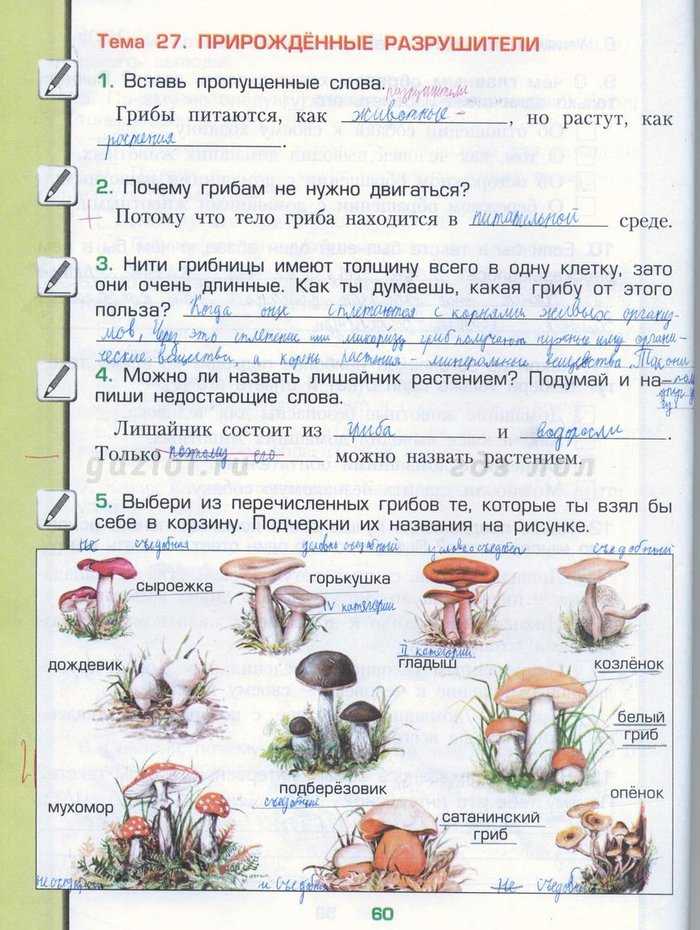 Тема 27. ПРИРОЖДЁННЫЕ РАЗРУШИТЕЛИ
1. Вставь пропущенные слова:
разрушители
Грибы питаются, как животные, но растут, как
растения.
2. Почему грибам не нужно двигаться?
Потому что тело гриба находится в питательной среде.
3. Нити грибницы имеют толщину всего в одну клетку, зато
они очень длинные. Как ты думаешь, какая грибу от этого
польза? Когда они сплетаются с корнями живых организ-
мов, через это сплетение или микоризу гриб получает нужные ему органи-
ческие вещества, а корень растения - минеральные вещества. Так они
4. Можно ли назвать лишайник растением? Подумай и на-
пиши недостающие слова.
Лишайник состоит из гриба и водоросли.
Только поэтому его можно назвать растением.
guzioi.ru
гдз лол
5. Выбери из перечисленных грибов те, которые ты взял бы
себе в корзину. Подчеркни их названия на рисунке.
не съедобная условно съедобный условно съедобен съедобный
сыроежка горькушка
IV категории
II категории
дождевик гладыш козлёнок
белый
гриб
подберёзовик
съедобный
мухомор сатанинский
гриб
опёнок
не съедобн
60